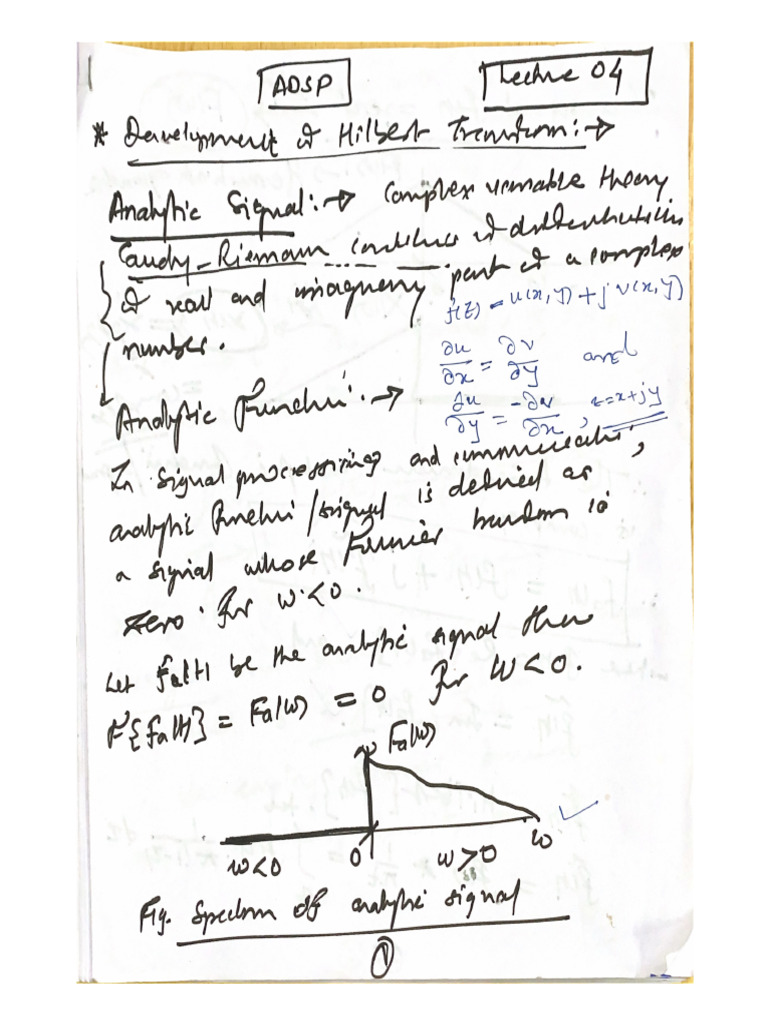 ADSP
Lecture 04
* Development of Hilbert Transform:→
Analytic Signal:→ Complex variable theory
Cauchy-Riemann condition of differentiability
of real and imaginary part of a complex
number.
f(z) = u(x,y)+j v(x,y)
∂u/∂x = ∂v/∂y and
∂u/∂y = -∂v/∂x, z=x+jy
Analytic Function:→
In signal processing and communication,
analytic function/signal is defined as
a signal whose Fourier transform is
zero for w<0.
Let fa(t) be the analytic signal then
F{fa(t)} = Fa(w) = 0 for w<0.
Fa(w)
w<0 0 w>0 w
Fig. Spectrum of analytic signal
1